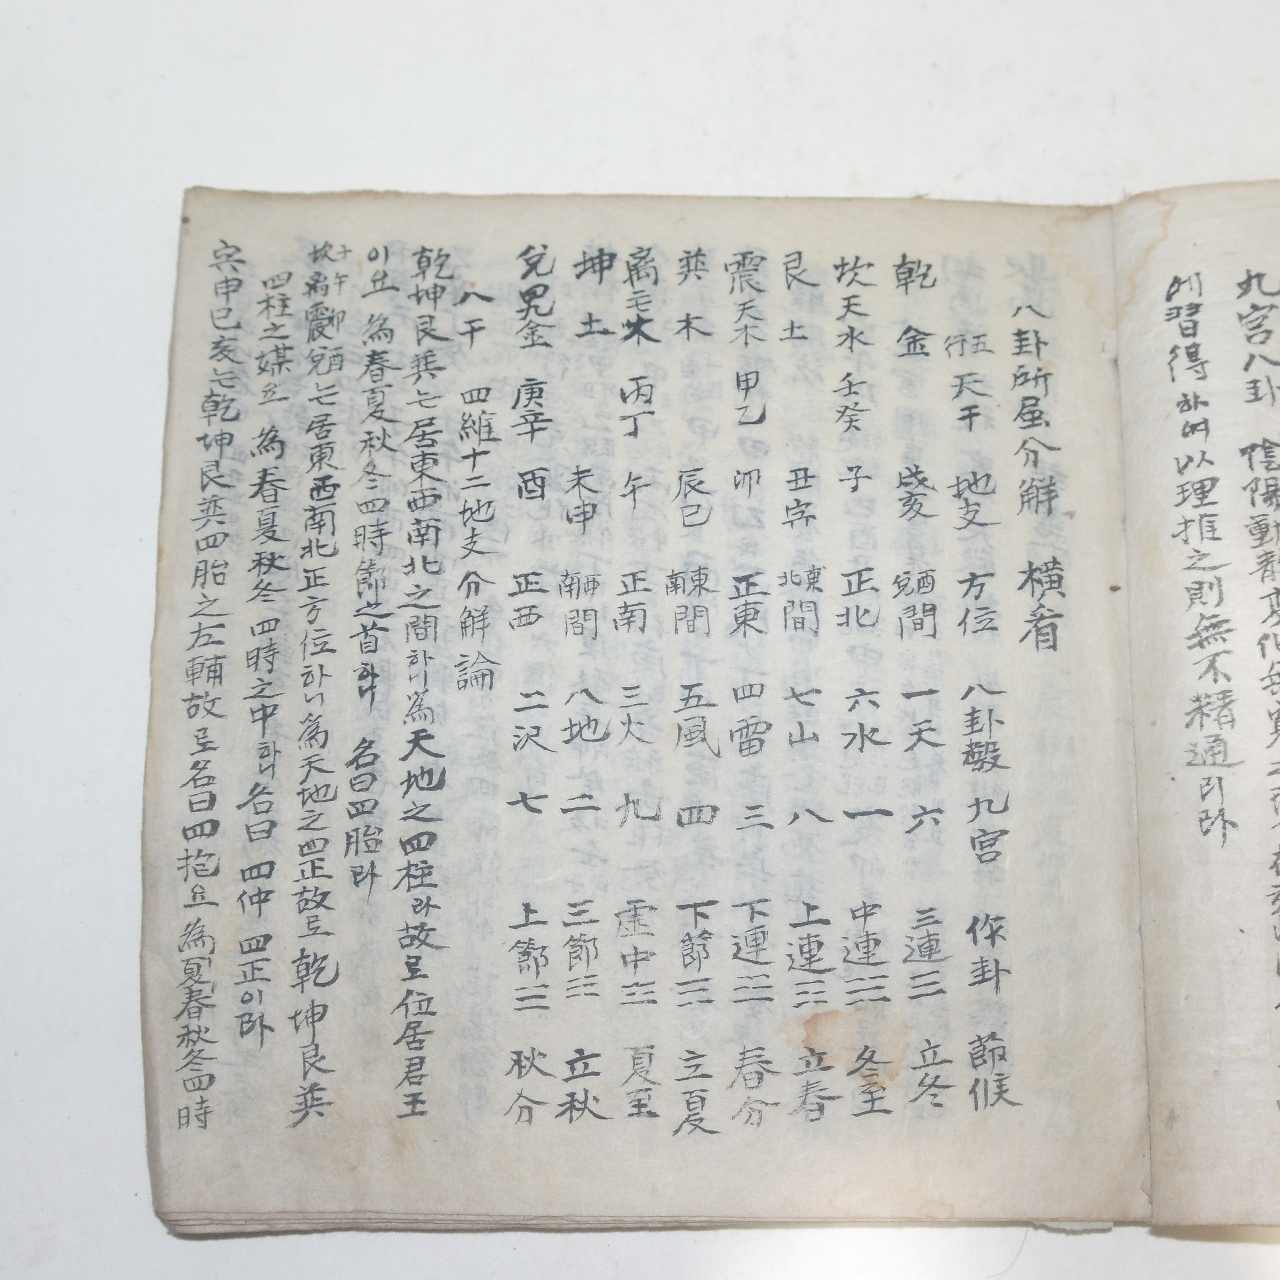 九宮八卦 陰陽動靜変化
에習得하여以理推之則無不精通리라
八卦所属分解 橫看
五行 天干 地支 方位 八卦數 九宮 作卦 節候
乾 金 戌亥 酉間 一天 六 三連☰ 立冬
坎 天水 壬癸 子 正北 六水 一 中連☵ 冬至
艮 土 丑寅 東北間 七山 八 上連☶ 立春
震 天木 甲乙 卯 正東 四雷 三 下連☳ 春分
巽 木 辰巳 東南間 五風 四 下節☴ 立夏
离 火 丙丁 午 正南 三火 九 虛中☲ 夏至
坤 土 未申 西南間 八地 二 三節☷ 立秋
兌 金 庚辛 酉 正西 二沢 七 上節☱ 秋分
八干 四維十二地支 分解論
乾坤艮巽는居東西南北之間하니為天地之四柱라故로位居君王
이요 為春夏秋冬四時節之首하니 名曰四胎라
坎离午震卯兌酉는居東西南北正方位하니為天地之四正故로乾坤艮巽
四柱之媒요 為春夏秋冬四時之中하니名曰 四仲 四正이라
寅申巳亥는乾坤艮巽四胎之左輔故로名曰四抱요為夏春秋冬四時